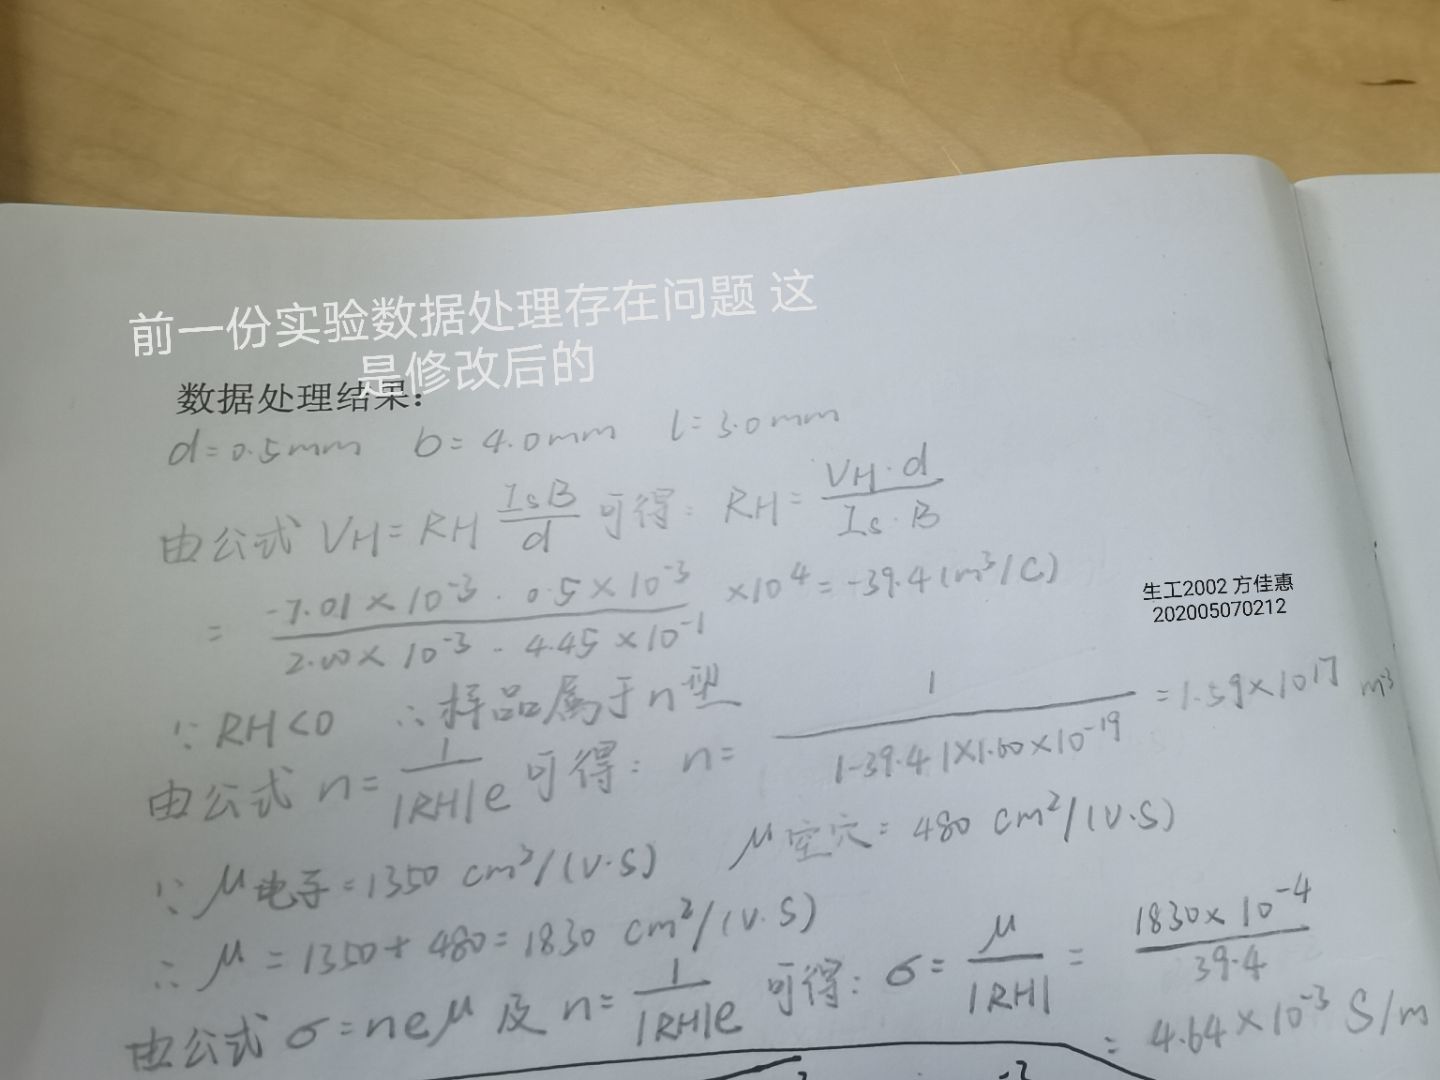 前一份实验数据处理存在问题 这
是修改后的
数据处理结果：
d=0.5mm b=4.0mm l=3.0mm
由公式 VH=RH IsB/d 可得：RH= VH·d/Is·B
= -7.01×10⁻³·0.5×10⁻³/2.00×10⁻³·4.45×10⁻¹ ×10⁴=-39.4(m³/C)
生工2002 方佳惠
202005070212
∵RH<0 ∴样品属于n型
由公式 n= 1/|RH|e 可得：n= 1/|-39.4|×1.60×10⁻¹⁹ =1.59×10¹⁷ m⁻³
∵μ电子=1350 cm²/(V·S) μ空穴=480 cm²/(V·S)
∴μ=1350+480=1830 cm²/(V·S)
由公式 σ=neμ 及 n= 1/|RH|e 可得：σ= μ/|RH| = 1830×10⁻⁴/39.4
=4.64×10⁻³ S/m